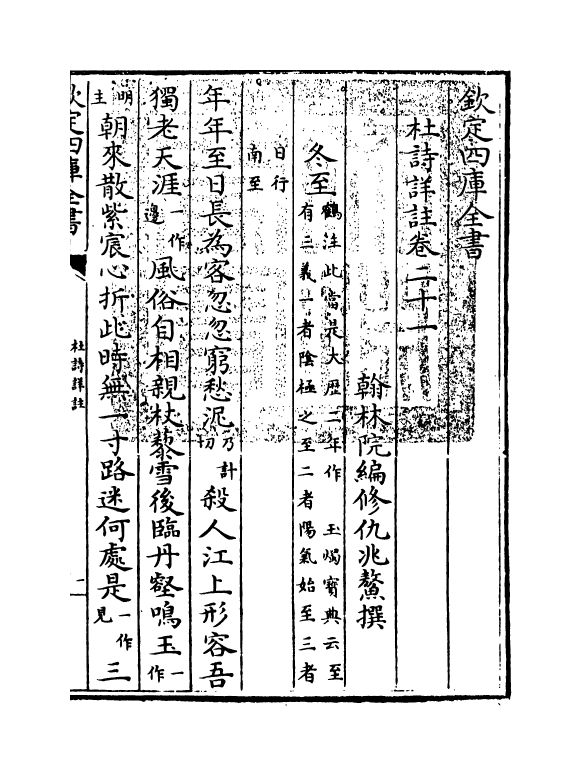 欽定四庫全書
杜詩詳註卷二十一
翰林院編修仇兆鰲撰
冬至鶴注此當是大歴二年作 玉燭寳典云至
有三義一者陰極之至二者陽氣始至三者
日行
南至
年年至日長為客忽忽窮愁泥乃計切殺人江上形容吾
獨老天涯一作邊風俗自相親杖藜雪後臨丹壑鳴玉一作
明主朝來散紫宸心折此時無一寸路迷何處是一作見三
欽定四庫全書
杜詩詳註